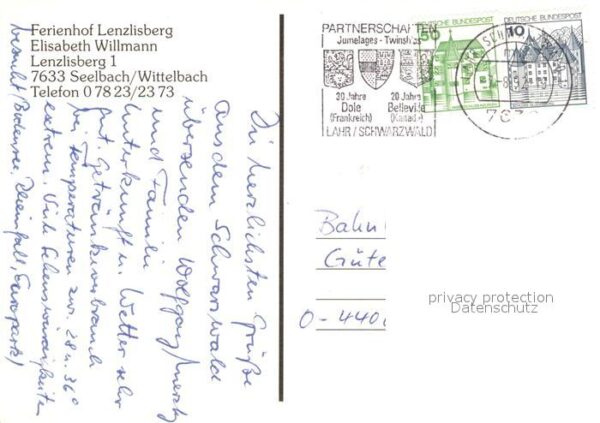 Ferienhof Lenzlisberg
Elisabeth Willmann
Lenzlisberg 1
7633 Seelbach/Wittelbach
Telefon 0 78 23/23 73
Die herzlichsten Grüße
aus dem Schwarzwald
übersenden Wolfgang
und Familie
Unterkunft u. Wetter sehr
gut Getränkeverbrauch
bei Temperaturen zw. 28 u. 36°
extrem. Viele Sehenswürdigkeiten
besucht (Bodensee, Rheinfall, Europapark)
PARTNERSCHAFTEN
Jumelages - Twinships
20 Jahre
Dole
(Frankreich)
20 Jahre
Belleville
(Kanada)
LAHR/SCHWARZWALD
50
DEUTSCHE BUNDESPOST
10
DEUTSCHE BUNDESPOST
Bahn
Güte
O-440
privacy protection
Datenschutz